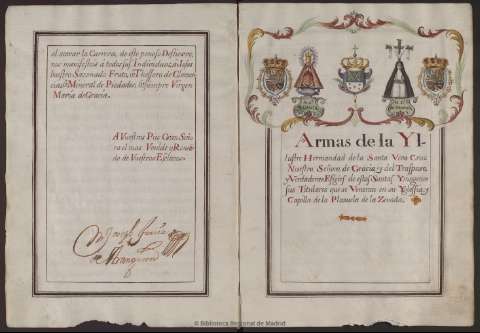 al acavar la Carrera, de este penoso Destierro,
nos manifesteis â todos sus Individuos, â Jesus
vuestro Sacrosanto Fruto, ô Thesora de Clemen-
cias, ô Mineral de Piedades, ô siempre Virgen
Maria de Gracia.
A Vuestros Pies Gran Seño-
ra el mas Venido y Rendi-
do de Vuestros Esclavos
de
Armas de la Yl-
lustre Hermandad de la Santa Vera Cruz
Nuestra Señora de Gracia y del Traspaso
y Verdaderas Efigies de estas Santas Ymagenes
sus Titulares que se Veneran en su Yglessia, y
Capilla de la Plazuela de la Zevada.
© Biblioteca Regional de Madrid